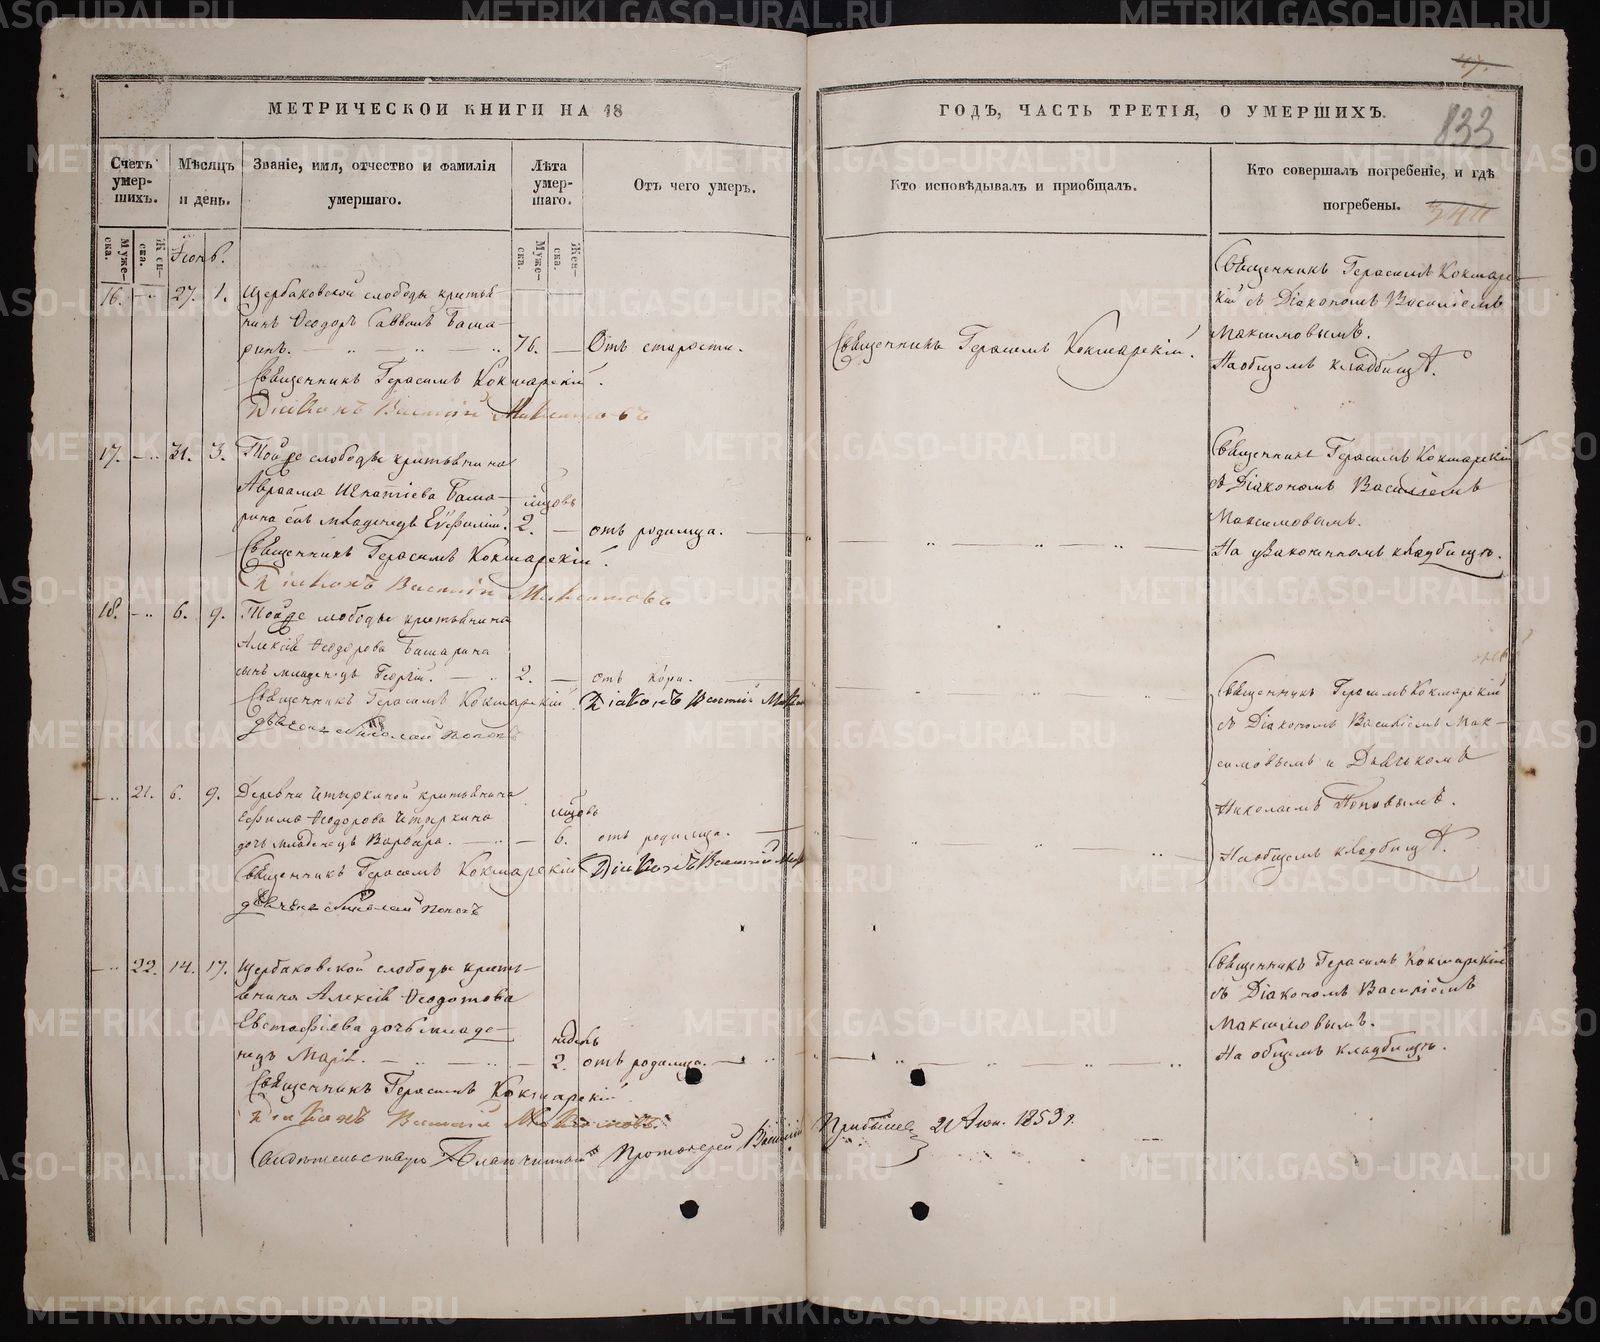 МЕТРИЧЕСКОИ КНИГИ НА 18
ГОДЪ, ЧАСТЬ ТРЕТІЯ, О УМЕРШИХЪ.
833
Счетъ умер-шихъ.
Мѣсяцъ и день.
Званіе, имя, отчество и фамилія умершаго.
Лѣта умер-шаго.
Отъ чего умеръ.
Кто исповѣдывалъ и приобщалъ.
Кто совершалъ погребеніе, и гдѣ погребены.
Муже-ска.
Жен-ска.
Муже-ска.
Жен-ска.
16. 27. 1. Щербаковской слободы
Ѳеодоръ Саввинъ Баша-
ринъ. 76. Отъ старости.
Священникъ Герасимъ Кокшарскій.
Священникъ Герасимъ Кокшарскій.
Діаконъ Василій Максимовъ
Священникъ Герасимъ Кокшарс-
кій съ Діакономъ Василіемъ
Максимовымъ.
На общемъ кладбищѣ.
17. 31. 3. Той же слободы
Авраама Игнатіева Баша-
рина сынъ младенецъ Евфимій. 2. отъ родимца.
Священникъ Герасимъ Кокшарскій.
Діаконъ Василій Максимовъ
Священникъ Герасимъ Кокшарскій
съ Діакономъ Василіемъ
Максимовымъ.
На узаконенномъ кладбищѣ.
18. 6. 9. Той же слободы
Алексія Ѳеодорова Башарина
сынъ младенецъ Георгій. 2. отъ кори.
Священникъ Герасимъ Кокшарскій Діаконъ Василій
Николай Поповъ
21. 6. 9. Деревни
Ефима Ѳеодорова
дочь младенецъ Варвара. 6. отъ родимца.
Священникъ Герасимъ Кокшарскій Діаконъ Василій
Николай Поповъ
Священникъ Герасимъ Кокшарскій
съ Діакономъ Василіемъ Мак-
симовымъ и Дьячкомъ
Николаемъ Поповымъ.
На общемъ кладбищѣ.
22. 14. 17. Щербаковской слободы кресть-
янина Алексія Ѳеодотова
Евстафіева дочь младе-
нецъ Марія. недѣль 2. отъ родимца.
Священникъ Герасимъ Кокшарскій
Діаконъ Василій Максимовъ.
Священникъ Герасимъ Кокшарскій
съ Діакономъ Василіемъ
Максимовымъ.
На общемъ кладбищѣ.
Свидѣтельствовалъ Благочинный Протоіерей Василій 1853 г.
METRIKI.GASO-URAL.RU